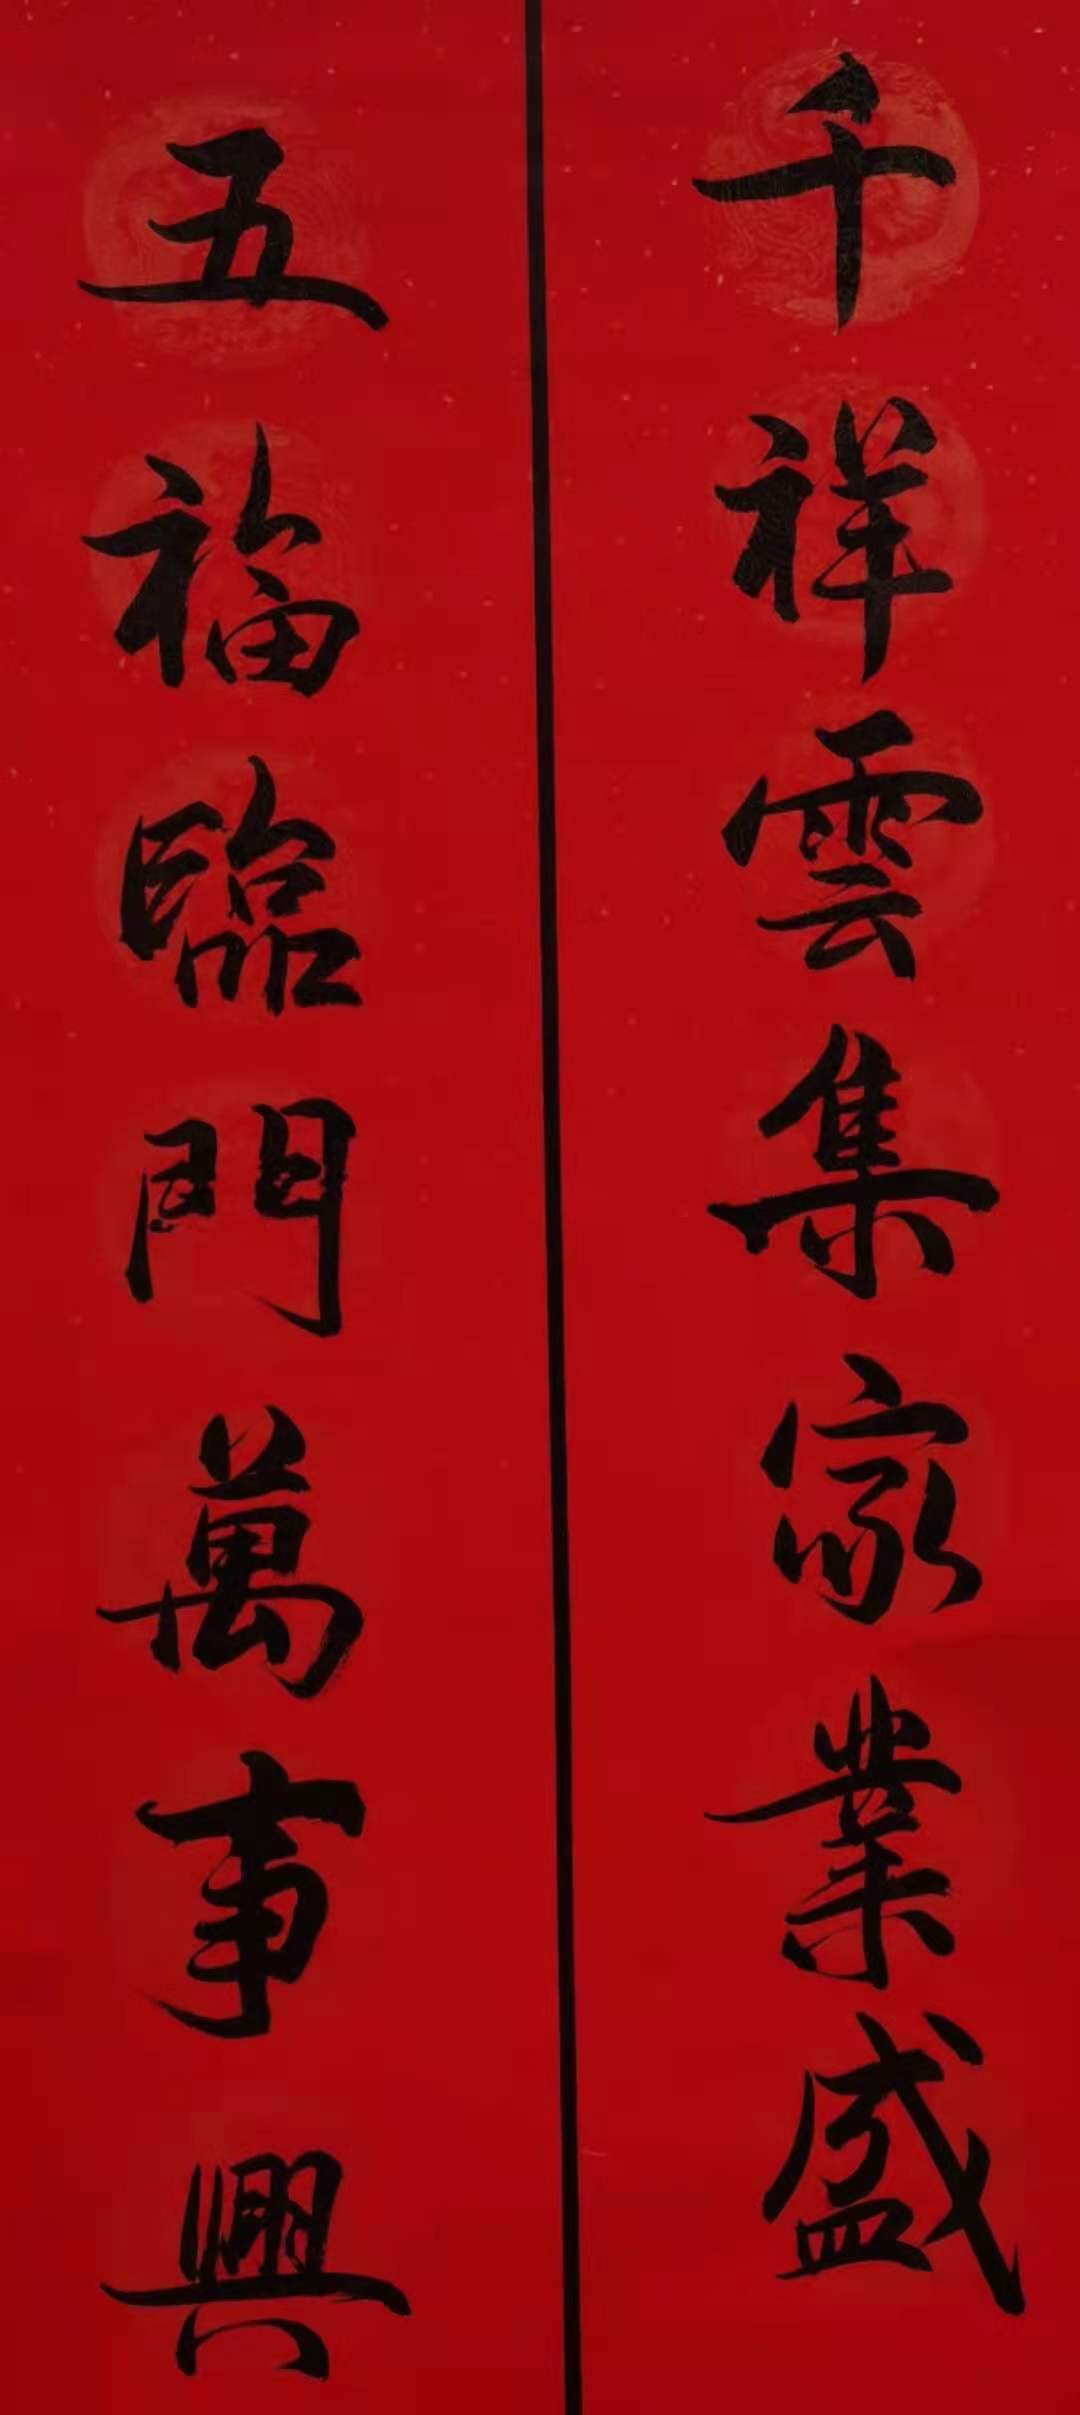 千祥雲集家業盛
五福臨門萬事興